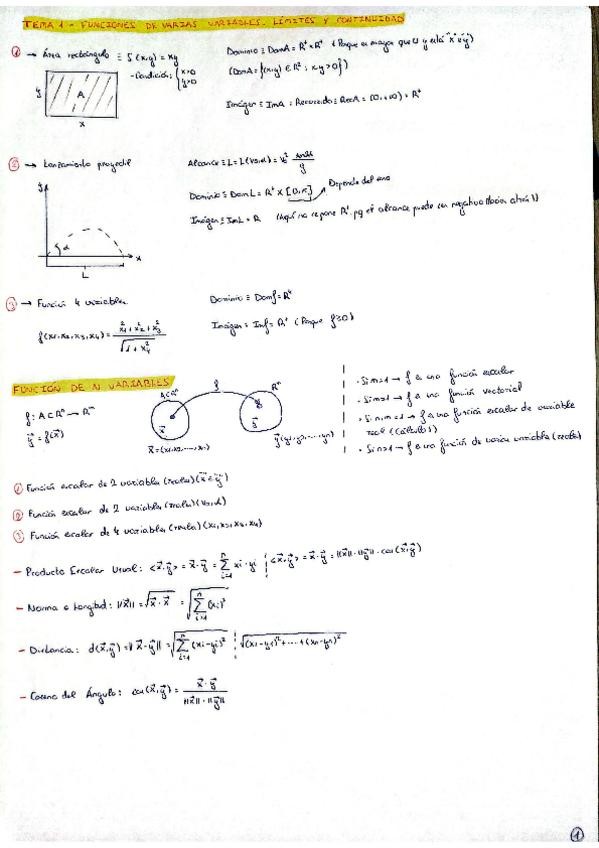 TEMA 1 - FUNCIONES DE VARIAS VARIABLES. LÍMITES Y CONTINUIDAD
① → Área rectángulo ≡ S(x,y) = xy
- Condición: { x>0
y>0
y
A
x
Dominio ≡ DomA = R⁺ x R⁺ (Porque es mayor que 0 y está "x" e "y")
(DomA = {(x,y) ∈ R² : x,y>0})
Imágen ≡ ImA = Recorrido ≡ RecA = (0,+∞) = R⁺
② → Lanzamiento proyectil
Alcance ≡ L = L(v₀,α) = v₀² sen2α / g
Dominio ≡ DomL = R⁺ x [0,π] → Depende del seno
Imágen ≡ ImL = R (Aquí no se pone R⁺ pq el alcance puede ser negativo (hacia atrás))
y
α
x
L
③ → Función 4 variables
f(x₁,x₂,x₃,x₄) = x₁² + x₂² + x₃² / √(1 + x₄²)
Dominio ≡ Domf = R⁴
Imágen = Imf = R⁺ (Porque f≥0)
FUNCIÓN DE N VARIABLES
f: A⊂Rⁿ → Rᵐ
ȳ = f(x̄)
A⊂Rⁿ
f
Rᵐ
x̄
ȳ
x̄ = (x₁,x₂,...,xₙ)
ȳ(y₁,y₂,...,yₘ)
· Si m=1 → f es una función escalar
· Si m>1 → f es una función vectorial
· Si n,m=1 → f es una función escalar de variable
real (Cálculo I)
· Si n>1 → f es una función de varias variables (reales)
① Función escalar de 2 variables (reales) (x e y)
② Función escalar de 2 variables (reales) (v₀,α)
③ Función escalar de 4 variables (reales) (x₁,x₂,x₃,x₄)
- Producto Escalar Usual: <x̄,ȳ> = x̄·ȳ = Σᵢ₌₁ⁿ xi·yi ¦ <x̄,ȳ> = x̄·ȳ = ||x̄||·||ȳ||·cos(x̄,ȳ)
- Norma o Longitud: ||x̄|| = √(x̄·x̄) = √(Σᵢ₌₁ⁿ (xi)²)
- Distancia: d(x̄,ȳ) = ||x̄-ȳ|| = √(Σᵢ₌₁ⁿ (xi-yi)²) ¦ √((x₁-y₁)²+....+(xₙ-yₙ)²)
- Coseno del Ángulo: cos(x̄,ȳ) = x̄·ȳ / ||x̄||·||ȳ||
①